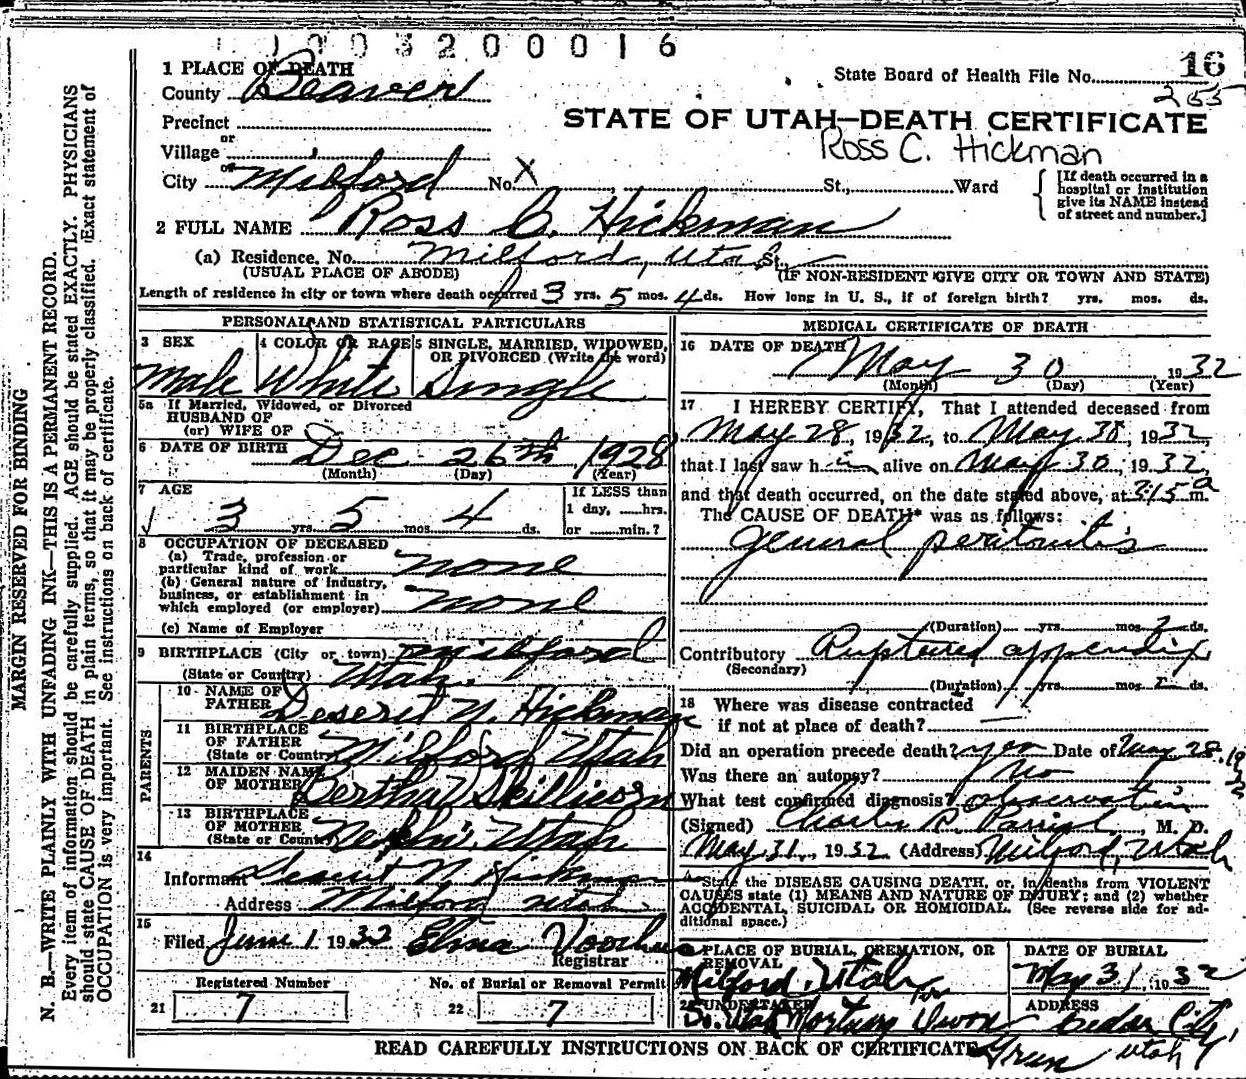 1003200016
16
1 PLACE OF DEATH
State Board of Health File No.
255
County Beaver
STATE OF UTAH—DEATH CERTIFICATE
Precinct
or
Ross C. Hickman
Village
or
City Milford No. X St., Ward
[If death occurred in a hospital or institution give its NAME instead of street and number.]
2 FULL NAME Ross C. Hickman
(a) Residence, No. Milford, Utah St.,
(USUAL PLACE OF ABODE) (IF NON-RESIDENT GIVE CITY OR TOWN AND STATE)
Length of residence in city or town where death occurred 3 yrs. 5 mos. 4 ds. How long in U. S., if of foreign birth? yrs. mos. ds.
PERSONAL AND STATISTICAL PARTICULARS
3 SEX Male
4 COLOR OR RACE White
5 SINGLE, MARRIED, WIDOWED, OR DIVORCED (Write the word) Single
5a If Married, Widowed, or Divorced
HUSBAND OF
(or) WIFE OF
6 DATE OF BIRTH Dec 26th 1928
(Month) (Day) (Year)
7 AGE
3 yrs. 5 mos. 4 ds.
If LESS than
1 day, hrs.
or min.?
8 OCCUPATION OF DECEASED
(a) Trade, profession or
particular kind of work none
(b) General nature of industry,
business, or establishment in
which employed (or employer) none
(c) Name of Employer
9 BIRTHPLACE (City or town) Milford
(State or Country) Utah.
PARENTS
10 NAME OF FATHER Deseret N. Hickman
11 BIRTHPLACE OF FATHER (State or Country) Milford Utah
12 MAIDEN NAME OF MOTHER Bertha Skillicorn
13 BIRTHPLACE OF MOTHER (State or Country) Nephi, Utah
14
Informant Deseret N. Hickman
Address Milford Utah
15
Filed June 1 1932 Elma Voorhees
Registrar
Registered Number
21 7
No. of Burial or Removal Permit
22 7
MEDICAL CERTIFICATE OF DEATH
16 DATE OF DEATH
May 30 1932
(Month) (Day) (Year)
17 I HEREBY CERTIFY, That I attended deceased from
May 28, 1932, to May 30, 1932,
that I last saw him alive on May 30, 1932,
and that death occurred, on the date stated above, at 3:15 a m.
The CAUSE OF DEATH* was as follows:
General peritonitis
(Duration) yrs. mos. 2 ds.
Contributory Ruptured appendix
(Secondary)
(Duration) yrs. mos. 2 ds.
18 Where was disease contracted
if not at place of death?
Did an operation precede death? yes Date of May 28. 1932
Was there an autopsy? No
What test confirmed diagnosis? observation
(Signed) Charles D. Parrish, M. D.
May 31, 1932 (Address) Milford, Utah
*State the DISEASE CAUSING DEATH, or, in deaths from VIOLENT
CAUSES state (1) MEANS AND NATURE OF INJURY; and (2) whether
ACCIDENTAL, SUICIDAL OR HOMICIDAL. (See reverse side for additional space.)
PLACE OF BURIAL, CREMATION, OR REMOVAL
Milford, Utah
DATE OF BURIAL
May 31, 1932
20 UNDERTAKER
So. Utah Mortuary
ADDRESS
Cedar City, Utah
READ CAREFULLY INSTRUCTIONS ON BACK OF CERTIFICATE
MARGIN RESERVED FOR BINDING
N. B.—WRITE PLAINLY WITH UNFADING INK—THIS IS A PERMANENT RECORD.
Every item of information should be carefully supplied. AGE should be stated EXACTLY. PHYSICIANS
should state CAUSE OF DEATH in plain terms, so that it may be properly classified. Exact statement of
OCCUPATION is very important. See instructions on back of certificate.